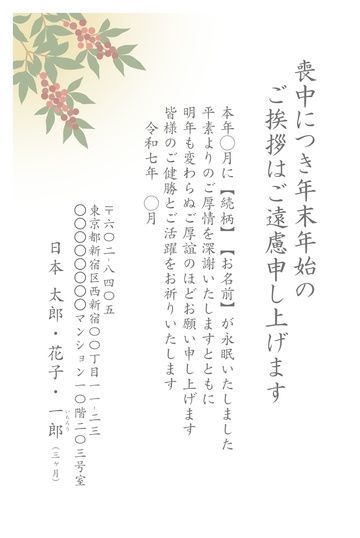 喪中につき年末年始の
ご挨拶はご遠慮申し上げます
本年〇月に【続柄】【お名前】が永眠いたしました
平素よりのご厚情を深謝いたしますとともに
明年も変わらぬご厚誼のほどお願い申し上げます
皆様のご健勝とご活躍をお祈りいたします
令和七年 〇月
〒六〇二-八四〇五
東京都新宿区西新宿〇〇丁目一一-二三
〇〇〇〇〇〇〇〇マンション一〇階二〇三号室
日本 太郎・花子・一郎（三ヶ月）
いちろう